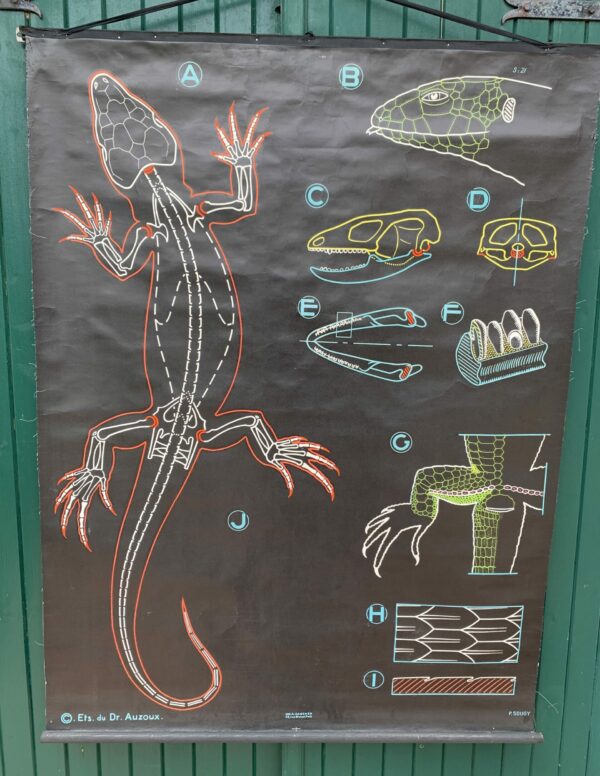 A
B
S. 21
C
D
E
F
G
J
H
I
© Ets. du Dr. Auzoux.
P. SOUGY